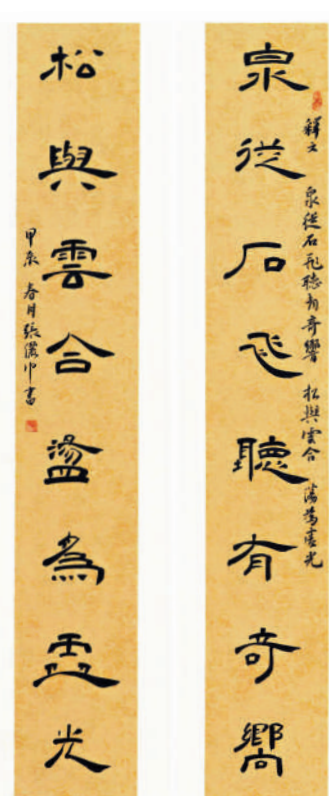 泉從石飛聽有奇嚮
釋文 泉從石飛聽有奇響 松與雲合 蕩為靈光
松與雲合盪為靈光
甲辰春月張 書